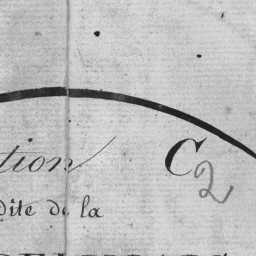 tion C 2
dite de la